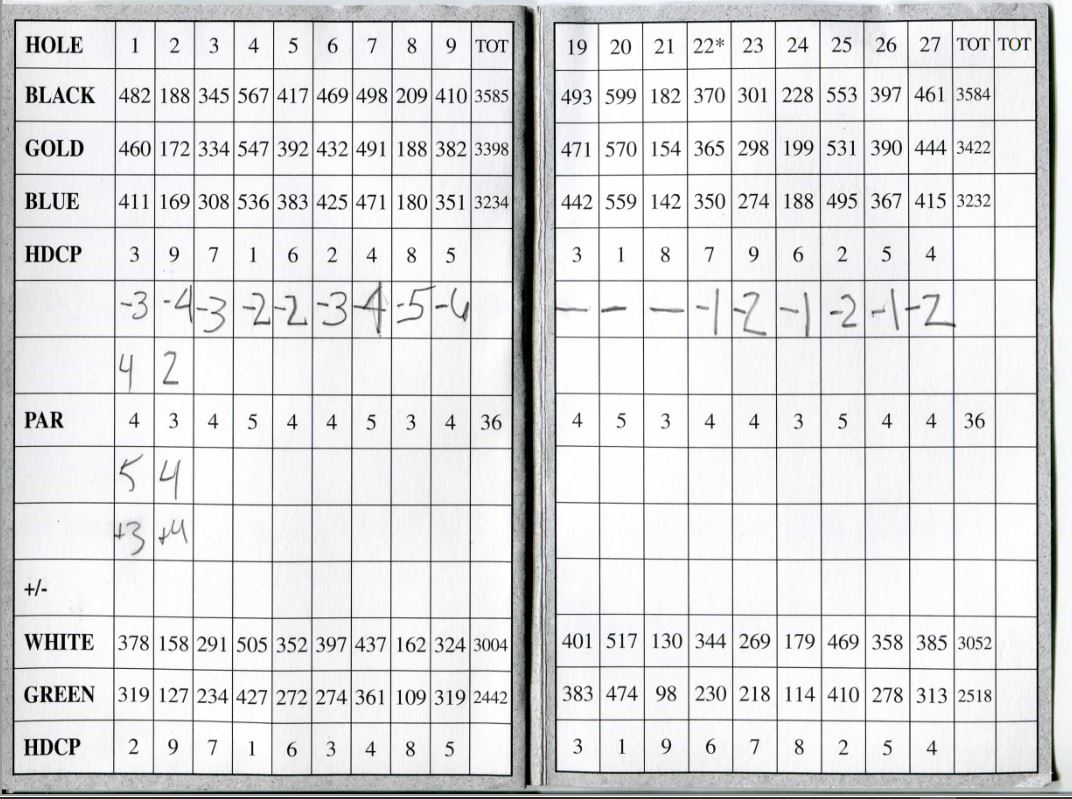 HOLE 1 2 3 4 5 6 7 8 9 TOT 19 20 21 22* 23 24 25 26 27 TOT TOT
BLACK 482 188 345 567 417 469 498 209 410 3585 493 599 182 370 301 228 553 397 461 3584
GOLD 460 172 334 547 392 432 491 188 382 3398 471 570 154 365 298 199 531 390 444 3422
BLUE 411 169 308 536 383 425 471 180 351 3234 442 559 142 350 274 188 495 367 415 3232
HDCP 3 9 7 1 6 2 4 8 5 3 1 8 7 9 6 2 5 4
-3 -4 -3 -2 -2 -3 -4 -5 -6 - - - -1 -2 -1 -2 -1 -2
4 2
PAR 4 3 4 5 4 4 5 3 4 36 4 5 3 4 4 3 5 4 4 36
5 4
+3 +4
+/-
WHITE 378 158 291 505 352 397 437 162 324 3004 401 517 130 344 269 179 469 358 385 3052
GREEN 319 127 234 427 272 274 361 109 319 2442 383 474 98 230 218 114 410 278 313 2518
HDCP 2 9 7 1 6 3 4 8 5 3 1 9 6 7 8 2 5 4